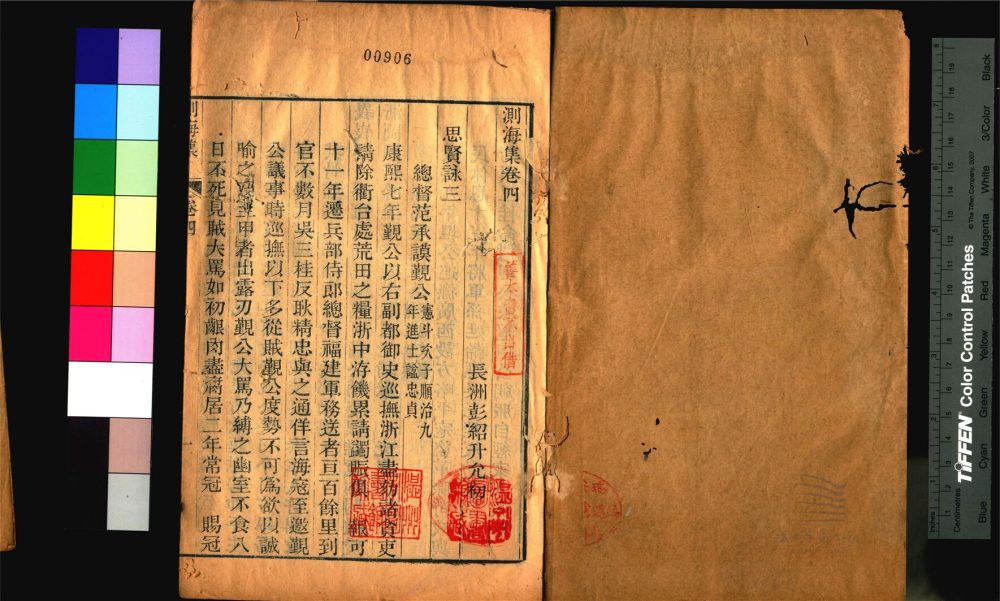 00906
測海集卷四
長洲彭紹升允初
思賢詠三
總督范承謨覲公憲斗次子順治九年進士諡忠貞
康熙七年覲公以右副都御史巡撫浙江盡劾諸貪吏
請除衢台處荒田之糧浙中洊饑累請蠲賑俱 報可
十一年遷兵部侍郎總督福建軍務送者亘百餘里到
官不數月吳三桂反耿精忠與之通佯言海寇至邀覲
公議事時巡撫以下多從賊覲公度勢不可為欲以誠
喻之 甲者出露刃覲公大罵乃縛之幽室不食八
日不死見賊大罵如初齦肉盡腐居二年常冠 賜冠
測海集 卷四
TIFFEN Color Control Patches
© The Tiffen Company, 2007
Blue Cyan Green Yellow Red Magenta White 3/Color Black
Inches
Centimetres